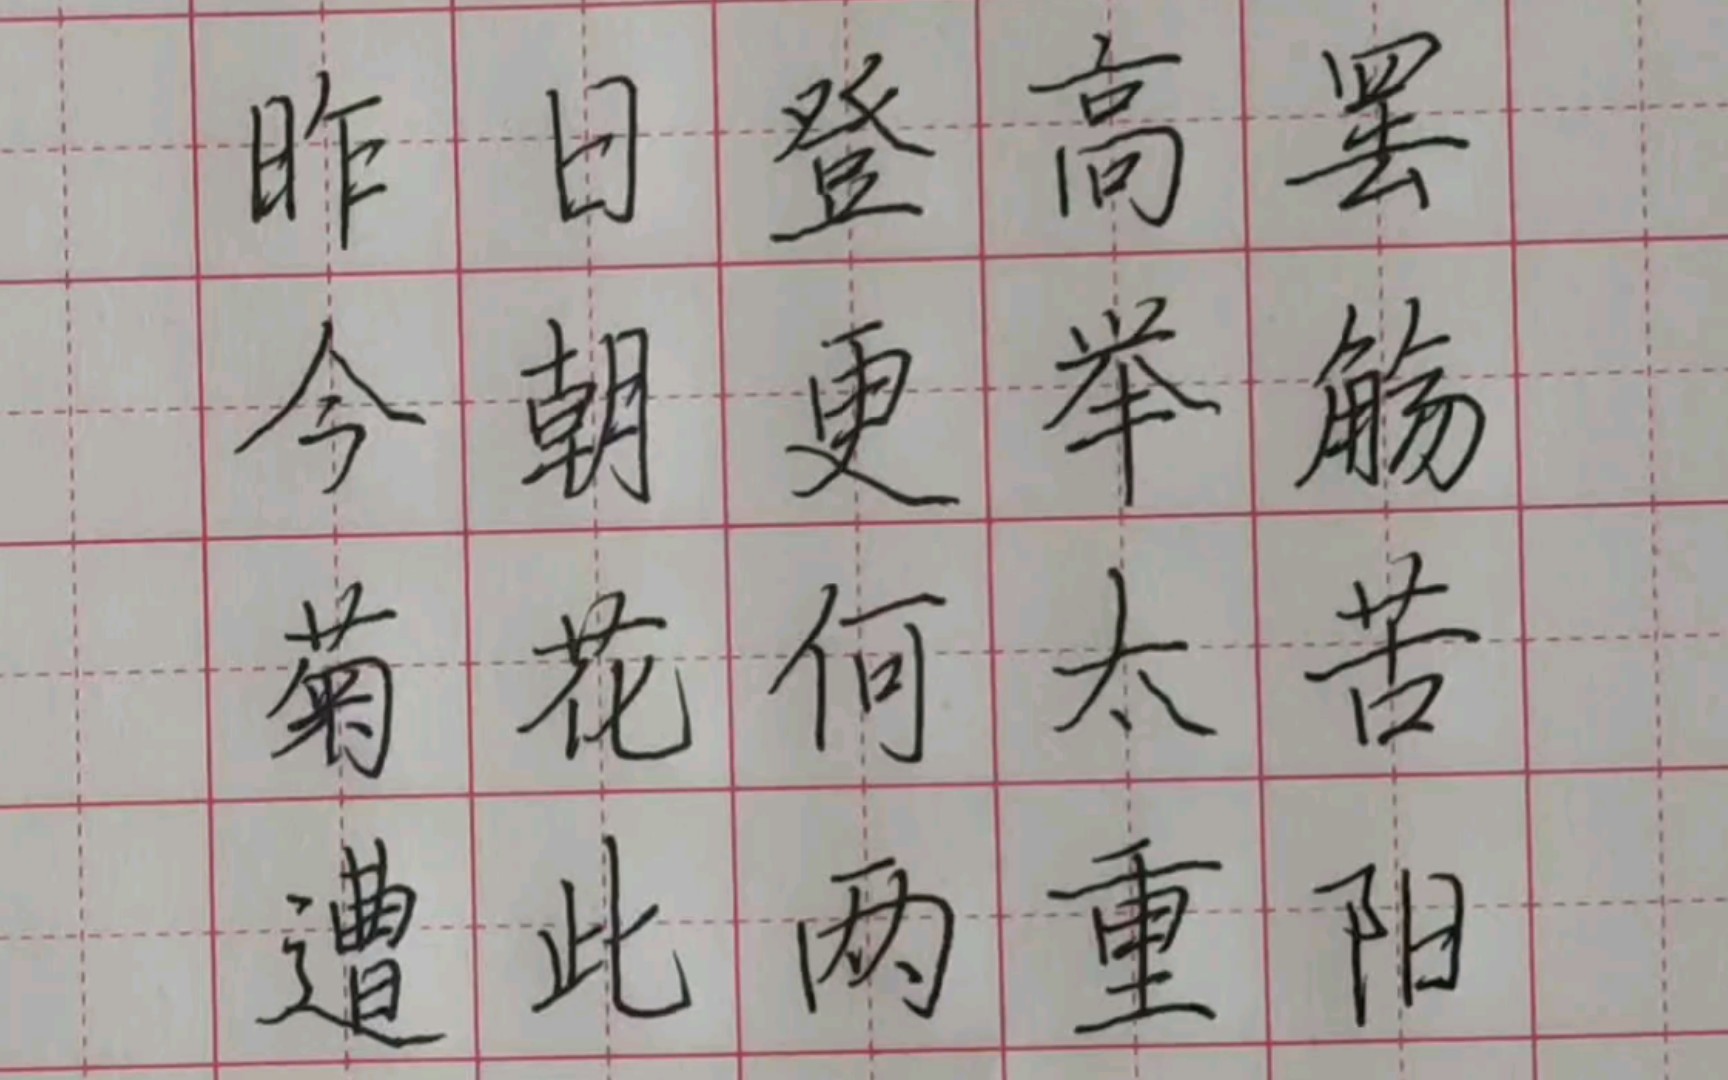 昨日登高罢
今朝更举觞
菊花何太苦
遭此两重阳